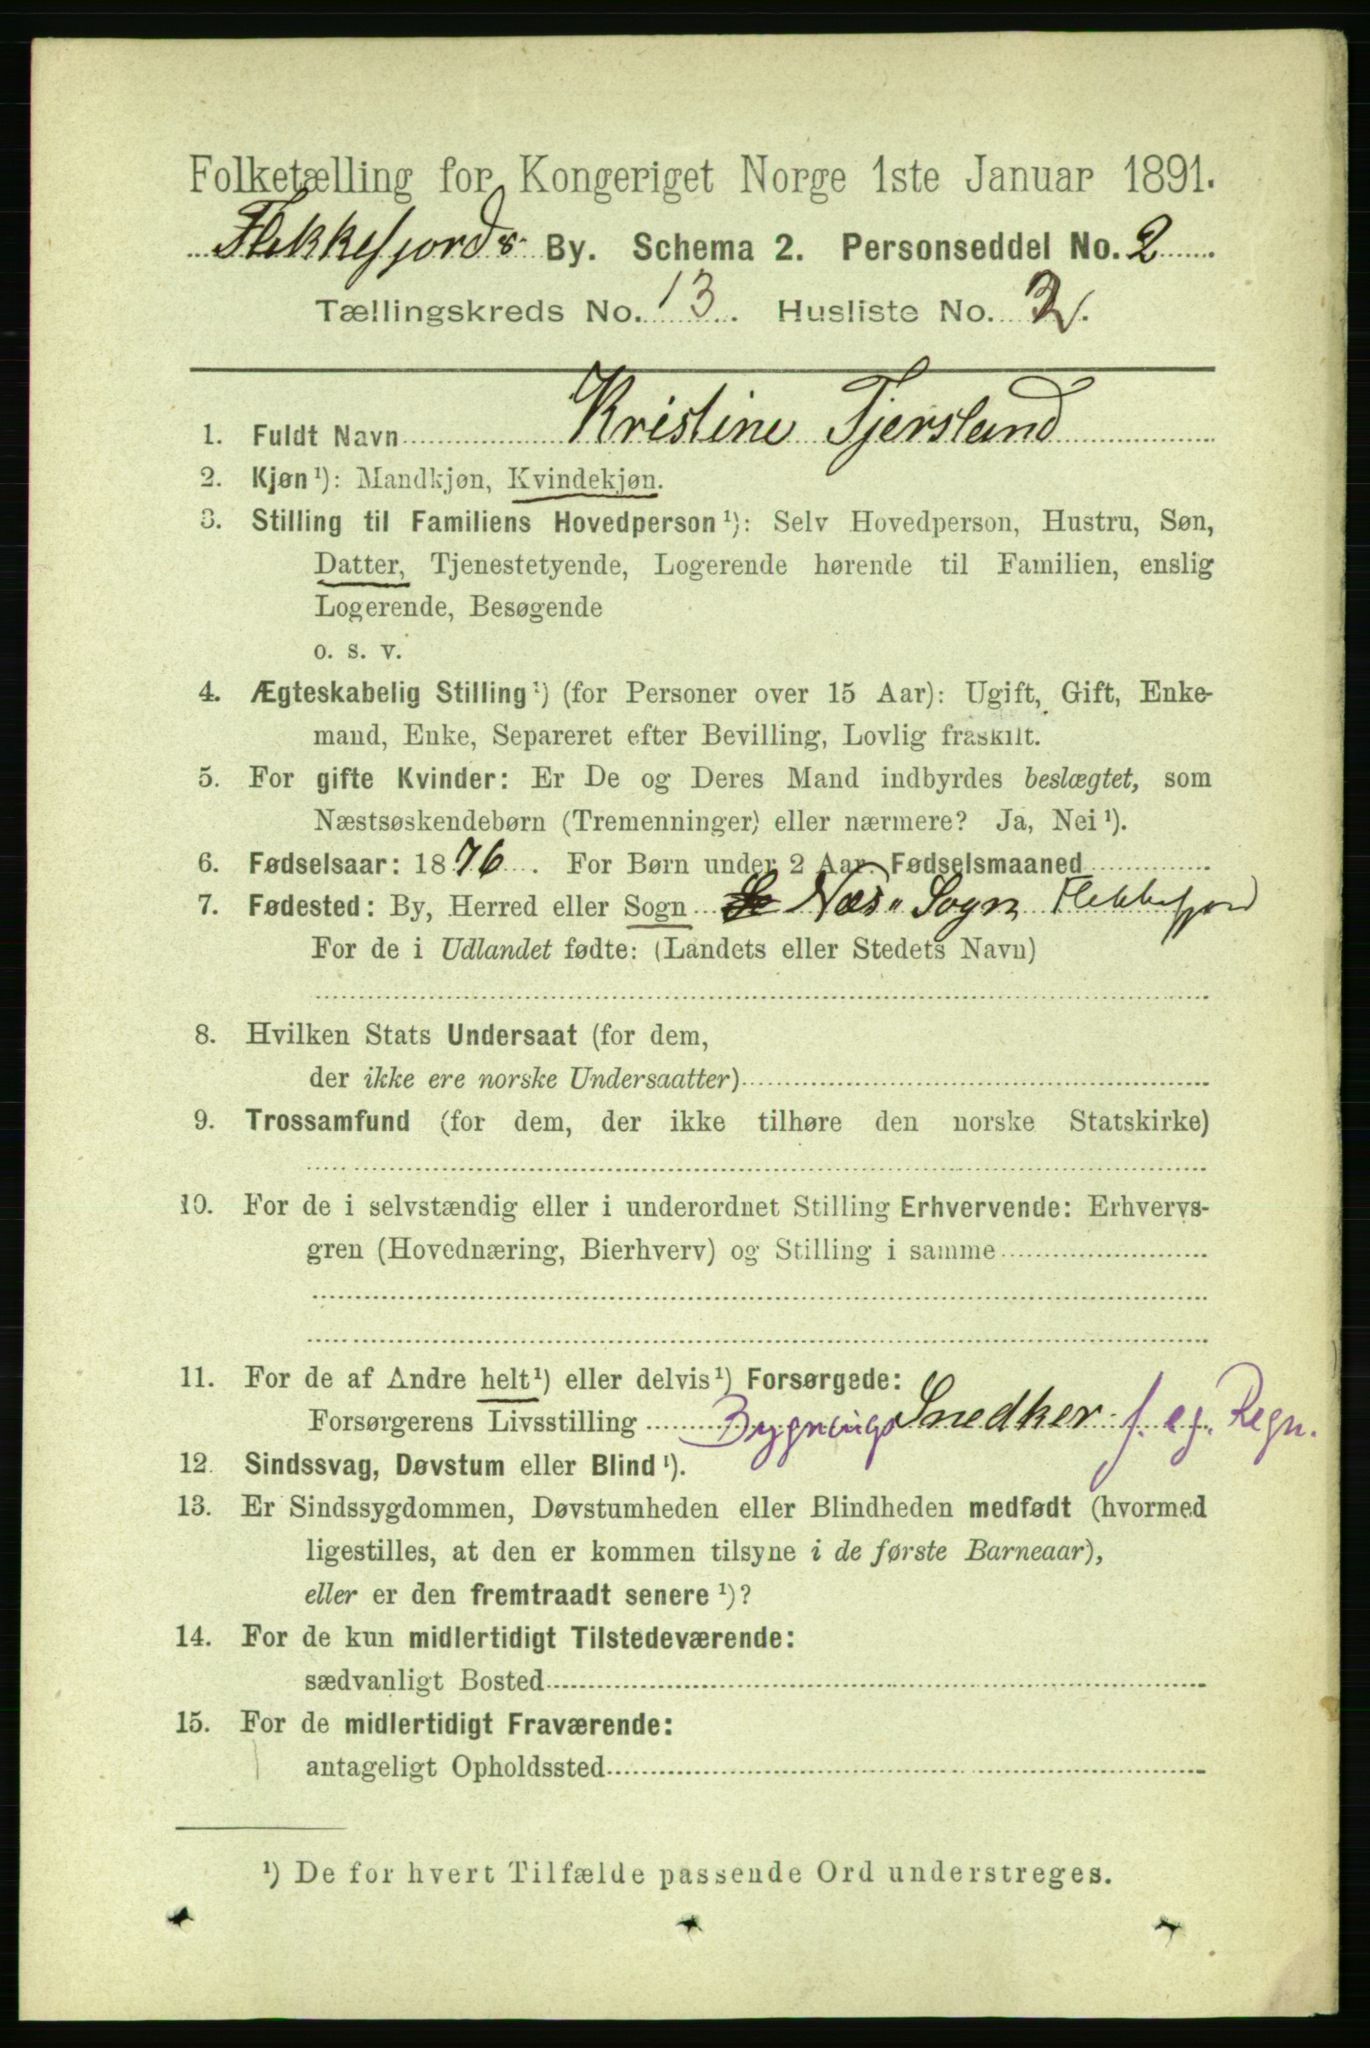 Folketælling for Kongeriget Norge 1ste Januar 1891.
Flekkefjords By. Schema 2. Personseddel No. 2
Tællingskreds No. 13. Husliste No. 2.
1. Fuldt Navn Kristine Tjersland
2. Kjøn¹): Mandkjøn, Kvindekjøn.
3. Stilling til Familiens Hovedperson¹): Selv Hovedperson, Hustru, Søn,
Datter, Tjenestetyende, Logerende hørende til Familien, enslig
Logerende, Besøgende
o. s. v.
4. Ægteskabelig Stilling¹) (for Personer over 15 Aar): Ugift, Gift, Enke-
mand, Enke, Separeret efter Bevilling, Lovlig fraskilt.
5. For gifte Kvinder: Er De og Deres Mand indbyrdes beslægtet, som
Næstsøskendebørn (Tremenninger) eller nærmere? Ja, Nei¹).
6. Fødselsaar: 1876. For Børn under 2 Aar: Fødselsmaaned
7. Fødested: By, Herred eller Sogn Næs" Sogn Flekkefjord
For de i Udlandet fødte: (Landets eller Stedets Navn)
8. Hvilken Stats Undersaat (for dem,
der ikke ere norske Undersaatter)
9. Trossamfund (for dem, der ikke tilhøre den norske Statskirke)
10. For de i selvstændig eller i underordnet Stilling Erhvervende: Erhvervs-
gren (Hovednæring, Bierhverv) og Stilling i samme
11. For de af Andre helt¹) eller delvis¹) Forsørgede:
Forsørgerens Livsstilling BygningsSnedker f. eg. Regn.
12. Sindssvag, Døvstum eller Blind¹).
13. Er Sindssygdommen, Døvstumheden eller Blindheden medfødt (hvormed
ligestilles, at den er kommen tilsyne i de første Barneaar),
eller er den fremtraadt senere¹)?
14. For de kun midlertidigt Tilstedeværende:
sædvanligt Bosted
15. For de midlertidigt Fraværende:
antageligt Opholdssted
¹) De for hvert Tilfælde passende Ord understreges.